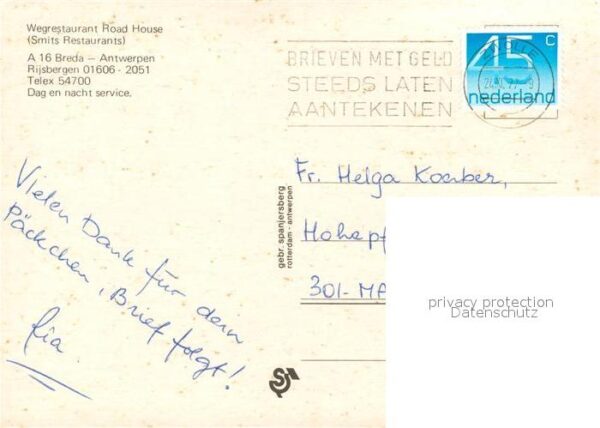 Wegrestaurant Road House
(Smits Restaurants)
A 16 Breda – Antwerpen
Rijsbergen 01606 - 2051
Telex 54700
Dag en nacht service.
BRIEVEN MET GELD
STEEDS LATEN
AANTEKENEN
45 c
nederland
Vielen Dank für dein
Päckchen, Brief folgt!
Ria.
gebr. spanjersberg
rotterdam - antwerpen
Fr. Helga Koerber,
Hohepf
301-MA
privacy protection
Datenschutz